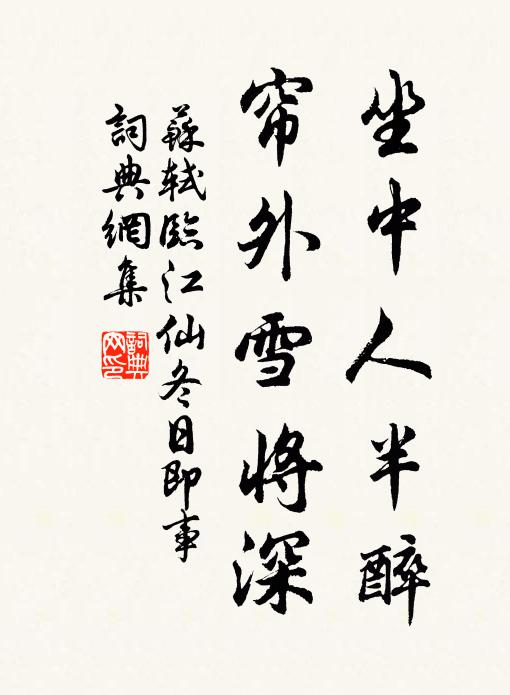 坐中人半醉
帘外雪将深
蘇軾臨江仙冬日即事
詞典網集
詞典網印